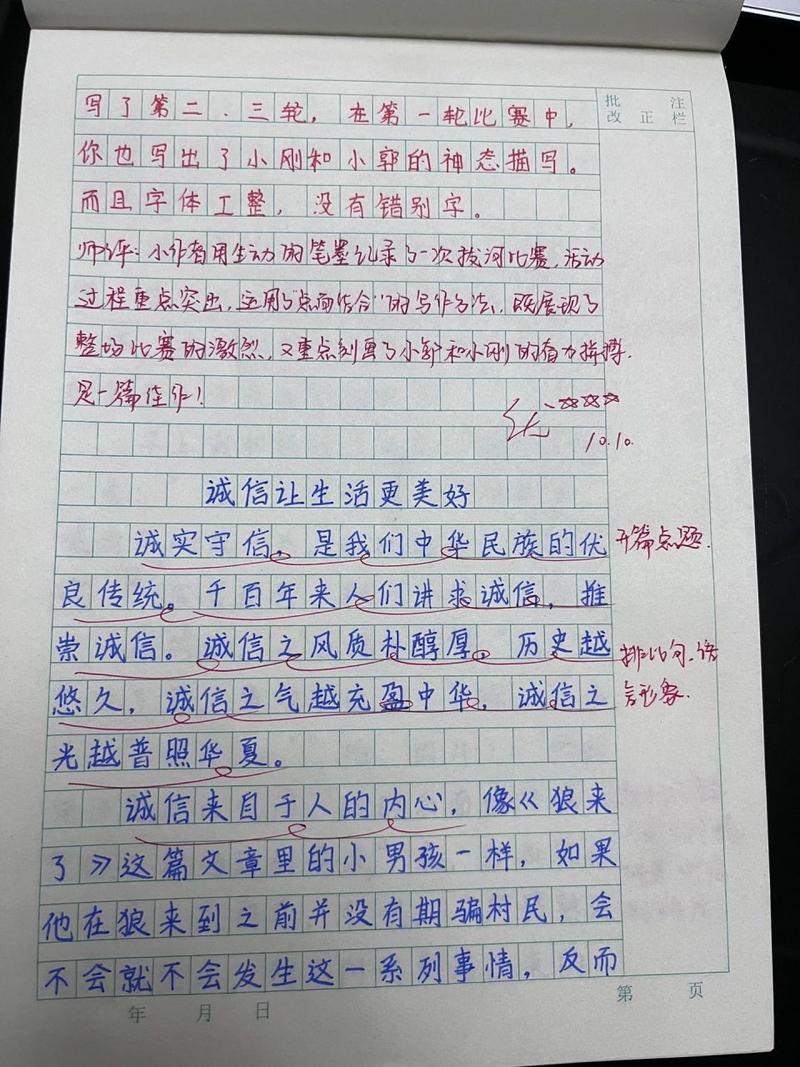 批 注
改 正 栏
写了第二、三轮，在第一轮比赛中，
你也写出了小刚和小郭的神态描写。
而且字体工整，没有错别字。
师评：小作者用生动的笔墨记录了一次拔河比赛，活动
过程重点突出，运用了“点面结合”的写作方法，既展现了
整场比赛的激烈，又重点刻画了小郭和小刚的奋力拼搏，
是一篇佳作！
优☆☆☆
10.10.
诚信让生活更美好
诚实守信，是我们中华民族的优
开篇点题。
良传统。千百年来人们讲求诚信，推
崇诚信。诚信之风质朴醇厚，历史越
排比句，语
悠久，诚信之气越充盈中华，诚信之
言形象。
光越普照华夏。
诚信来自于人的内心，像《狼来
了》这篇文章里的小男孩一样，如果
他在狼来到之前并没有期骗村民，会
不会就不会发生这一系列事情，反而
年 月 日
第 页